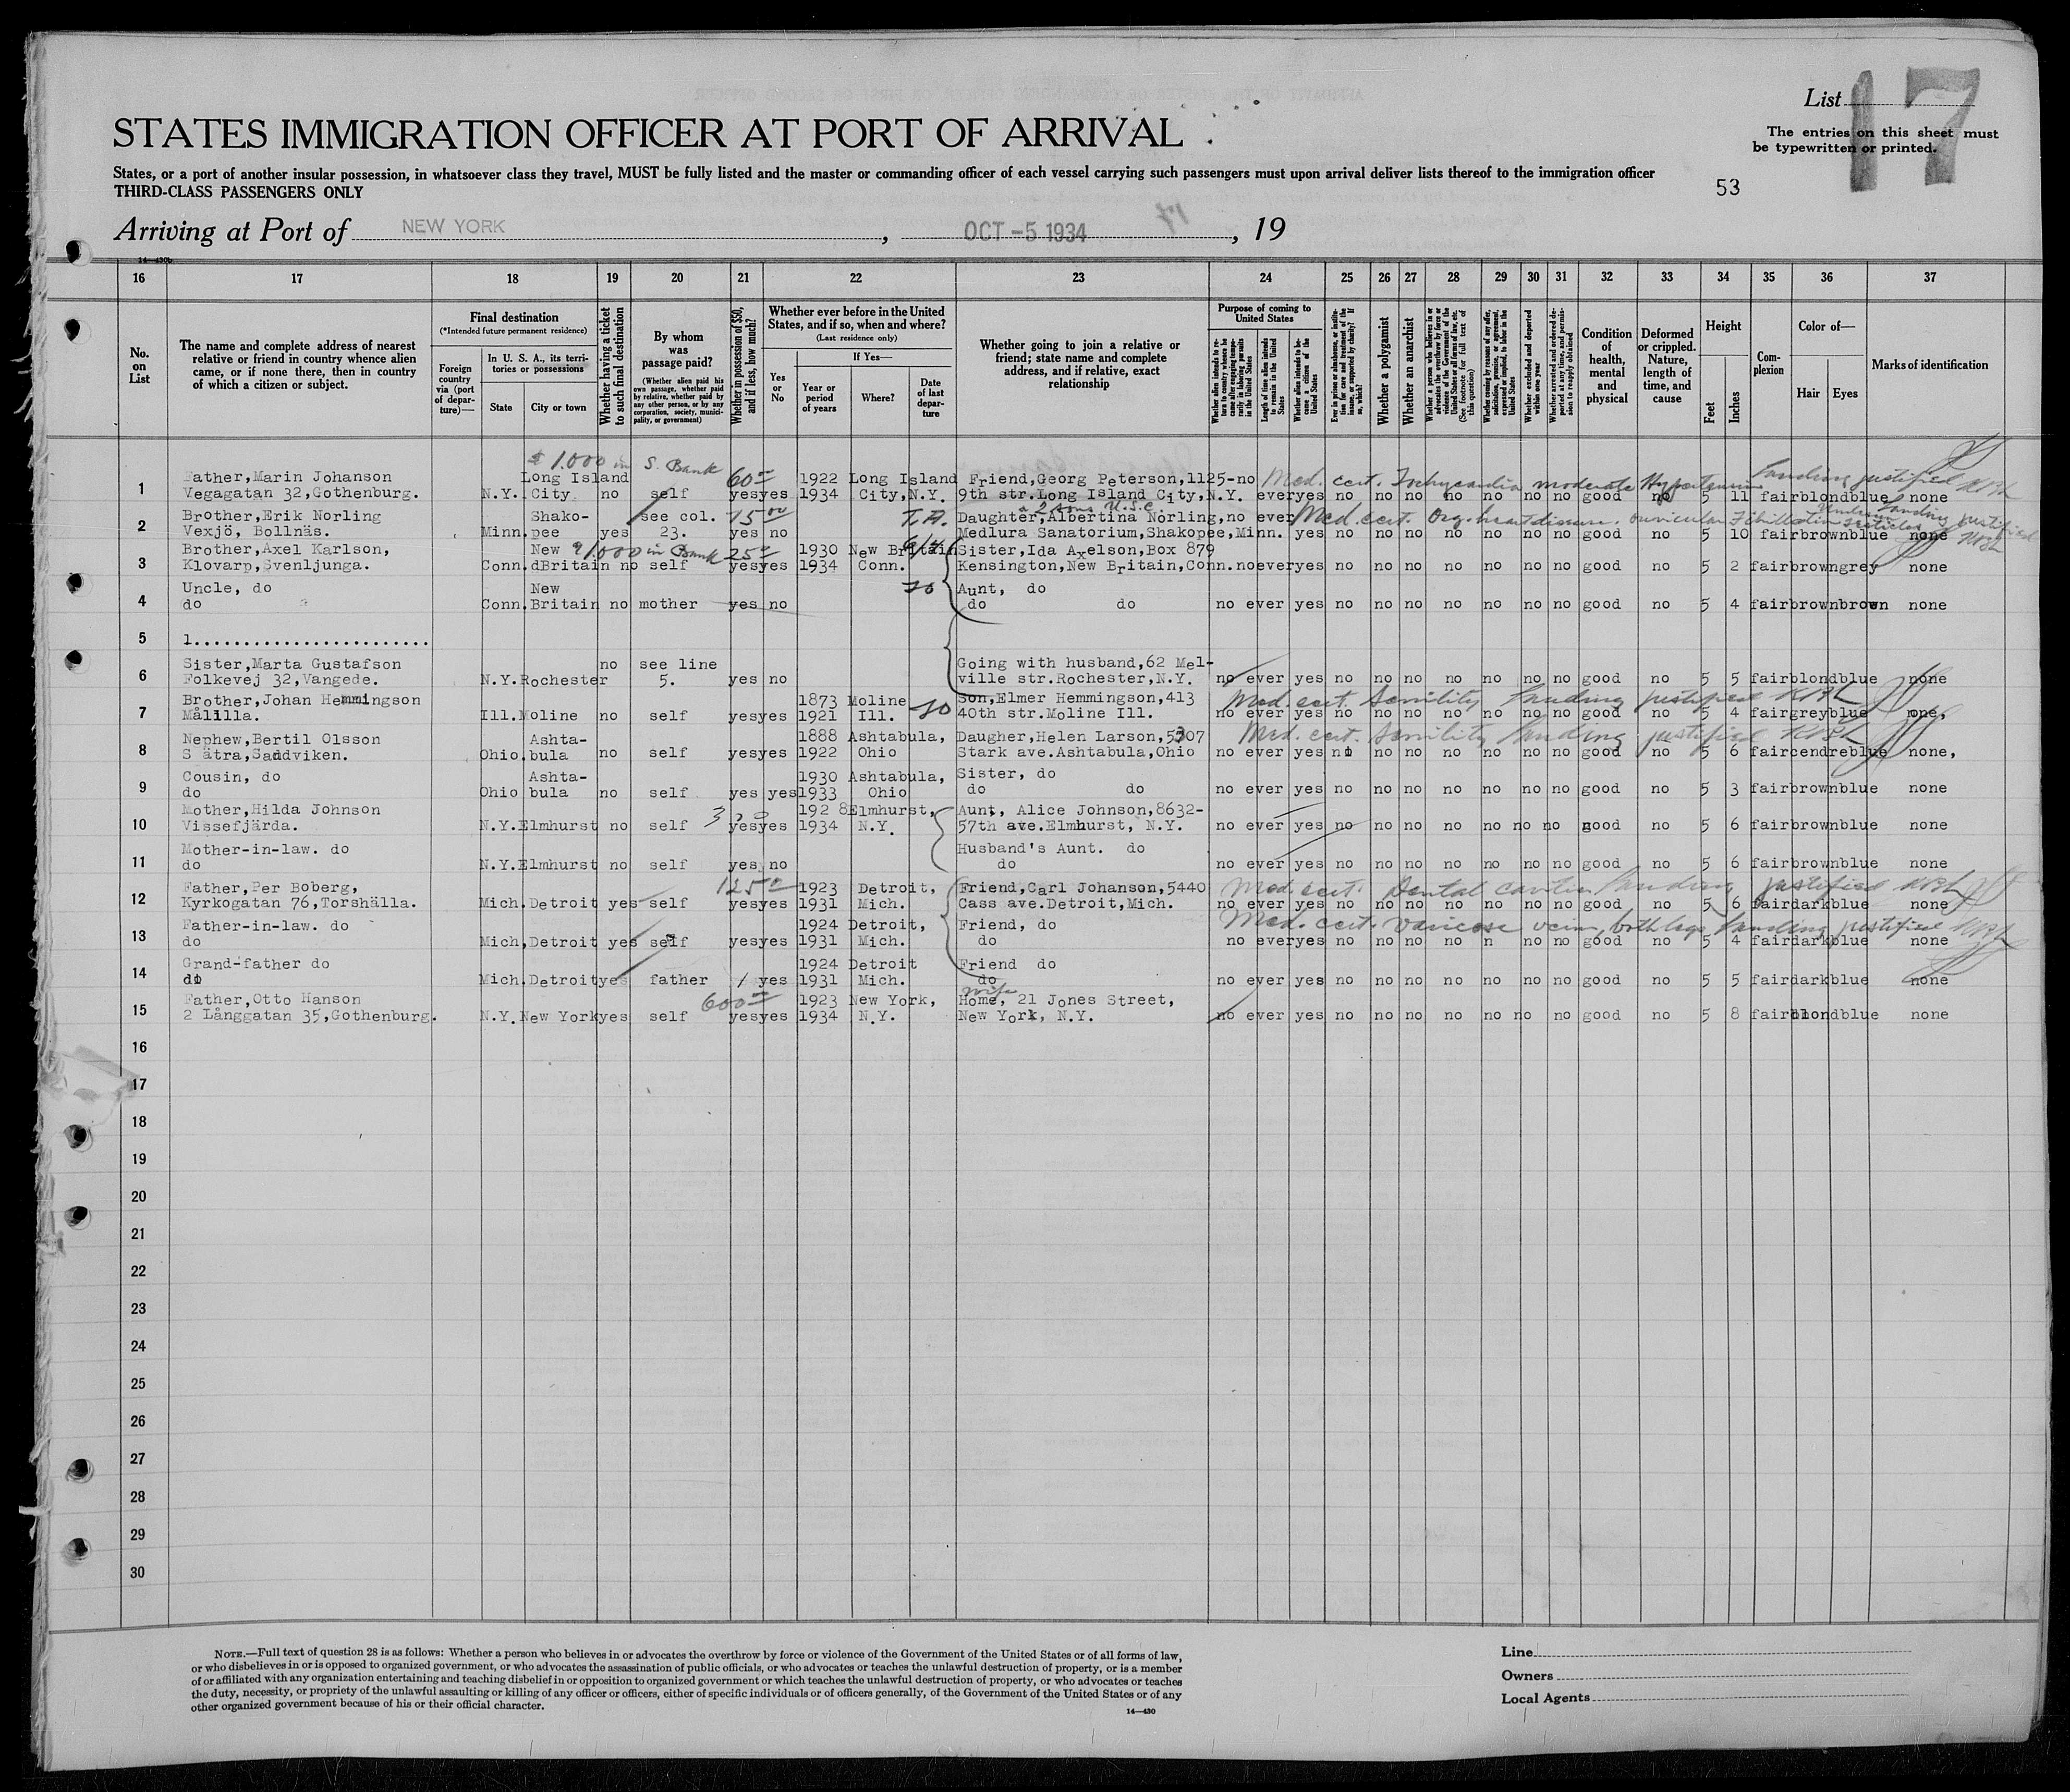 List 17
STATES IMMIGRATION OFFICER AT PORT OF ARRIVAL
The entries on this sheet must
be typewritten or printed.
States, or a port of another insular possession, in whatsoever class they travel, MUST be fully listed and the master or commanding officer of each vessel carrying such passengers must upon arrival deliver lists thereof to the immigration officer
THIRD-CLASS PASSENGERS ONLY
53
Arriving at Port of NEW YORK, OCT -5 1934, 19
14-430b
16 17 18 19 20 21 22 23 24 25 26 27 28 29 30 31 32 33 34 35 36 37
No. on List
The name and complete address of nearest relative or friend in country whence alien came, or if none there, then in country of which a citizen or subject.
Final destination
(*Intended future permanent residence)
Foreign country via (port of departure)—
In U. S. A., its territories or possessions
State
City or town
Whether having a ticket to such final destination
By whom was passage paid?
(Whether alien paid his own passage, whether paid by relative, whether paid by any other person, or by any corporation, society, municipality, or government)
Whether in possession of $50, and if less, how much?
Whether ever before in the United States, and if so, when and where?
(Last residence only)
Yes or No
If Yes—
Year or period of years
Where?
Date of last departure
Whether going to join a relative or friend; state name and complete address, and if relative, exact relationship
Purpose of coming to United States
Length of time alien intends to remain in the United States
Whether alien intends to become a citizen of the United States
Whether a polygamist
Whether an anarchist
(See footnote for full text of this question)
Whether excluded and deported within one year
Condition of health, mental and physical
Deformed or crippled. Nature, length of time, and cause
Height
Feet
Inches
Complexion
Color of—
Hair
Eyes
Marks of identification
$ 1.000 in S. Bank 60
Father,Marin Johanson Long Island 1922 Long Island Friend,Georg Peterson,1125- no Med. cert. Tachycardia moderate Hypertension Landing justified
1 Vegagatan 32,Gothenburg. N.Y. City no self yes yes 1934 City,N.Y. 9th str.Long Island City,N.Y. ever yes no no no no no no no good no 5 11 fair blond blue none
Brother,Erik Norling Shako- see col. 75 T.A. & 2 sons U.S.C. Daughter,Albertina Norling, no ever Med. cert. Org. heart disease. auricular Fibrillation Landing justified
2 Vexjö, Bollnäs. Minn. pee yes 23. yes no Medlura Sanatorium,Shakopee,Minn. yes no no no no no no no good no 5 10 fair brown blue none
Brother,Axel Karlson, New $1.000 in Bank 25 1930 New Britain Sister,Ida Axelson,Box 879
3 Klovarp,Svenljunga. Conn. dBritain no self yes yes 1934 Conn. Kensington,New Britain,Conn. no ever yes no no no no no no no good no 5 2 fair brown grey none
Uncle, do New Aunt, do
4 do Conn. Britain no mother yes no do do no ever yes no no no no no no no good no 5 4 fair brown brown none
5 1........................
Sister,Marta Gustafson no see line Going with husband,62 Mel-
6 Folkevej 32,Vangede. N.Y. Rochester 5. yes no ville str.Rochester,N.Y. no ever yes no no no no no no no good no 5 5 fair blond blue none
Brother,Johan Hemmingson 1873 Moline Son,Elmer Hemmingson,413 Med. cert. Senility Landing justified
7 Målilla. Ill. Moline no self yes yes 1921 Ill. 40th str.Moline Ill. no ever yes no no no no no no no good no 5 4 fair grey blue none,
Nephew,Bertil Olsson Ashta- 1888 Ashtabula, Daugher,Helen Larson,5307 Med. cert. Senility Landing justified
8 S ätra,Sandviken. Ohio. bula no self yes yes 1922 Ohio Stark ave.Ashtabula,Ohio no ever yes no no no no no no no good no 5 6 fair cendre blue none,
Cousin, do Ashta- 1930 Ashtabula, Sister, do
9 do Ohio bula no self yes yes 1933 Ohio do do no ever yes no no no no no no no good no 5 3 fair brown blue none
Mother,Hilda Johnson 192 8 Elmhurst, Aunt, Alice Johnson,8632-
10 Vissefjärda. N.Y. Elmhurst no self yes yes 1934 N.Y. 57th ave.Elmhurst, N.Y. no ever yes no no no no no no no good no 5 6 fair brown blue none
Mother-in-law. do Husband's Aunt. do
11 do N.Y. Elmhurst no self yes no do no ever yes no no no no no no no good no 5 6 fair brown blue none
Father,Per Boberg, 125 1923 Detroit, Friend,Carl Johanson,5440 Med. cert. Dental caries Landing justified
12 Kyrkogatan 76,Torshälla. Mich. Detroit yes self yes yes 1931 Mich. Cass ave.Detroit,Mich. no ever yes no no no no no no no good no 5 6 fair dark blue none
Father-in-law. do 1924 Detroit, Friend, do Med. cert. varicose vein, both legs Landing justified
13 do Mich. Detroit yes self yes yes 1931 Mich. do no ever yes no no no no n no no good no 5 4 fair dark blue none
Grand-father do 1924 Detroit Friend do
14 do Mich. Detroit yes father / yes 1931 Mich. do no ever yes no no no no no no no good no 5 5 fair dark blue none
Father,Otto Hanson 600 1923 New York, wife Home, 21 Jones Street,
15 2 Långgatan 35,Gothenburg. N.Y. New York yes self yes yes 1934 N.Y. New York, N.Y. no ever yes no no no no no no no good no 5 8 fair blond blue none
16
17
18
19
20
21
22
23
24
25
26
27
28
29
30
NOTE.—Full text of question 28 is as follows: Whether a person who believes in or advocates the overthrow by force or violence of the Government of the United States or of all forms of law,
or who disbelieves in or is opposed to organized government, or who advocates the assassination of public officials, or who advocates or teaches the unlawful destruction of property, or is a member
of or affiliated with any organization entertaining and teaching disbelief in or opposition to organized government or which teaches the unlawful destruction of property, or who advocates or teaches
the duty, necessity, or propriety of the unlawful assaulting or killing of any officer or officers, either of specific individuals or of officers generally, of the Government of the United States or of any
other organized government because of his or their official character.
14—430
Line
Owners
Local Agents